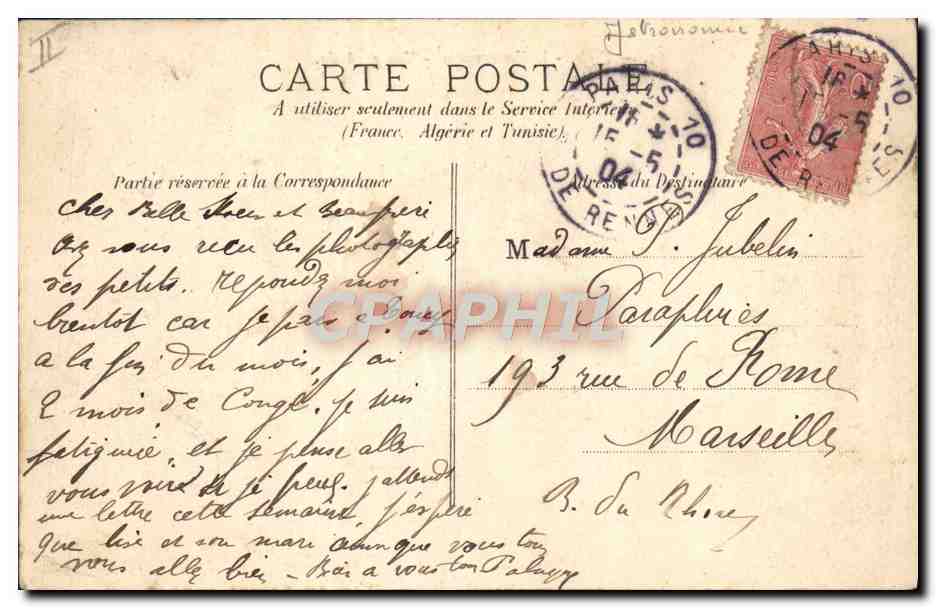 II
CARTE POSTALE
A utiliser seulement dans le Service Intérieur
(France, Algérie et Tunisie)
Partie réservée à la Correspondance
Adresse du Destinataire
cher Belle Soeur et Beaufrere
avez vous recu les photographies
des petits. repondez moi
bientot car je pars
a la fin du mois, j'ai
2 mois de Congé. je suis
fatiguée, et je pense aller
vous voire si je peus. j'attends
une lettre cette semaine, j'espere
que lise et son mari ainsi que vous tous
vous allez bien -
a vous tous
Madame J. Jubelin
Parapluies
193 rue de Rome
Marseille
B. du Rhone
PARIS 10
16
15 -5
04
DE RENNES
PARIS 10
16
-5
04
DE RENNES
CPAPHIL